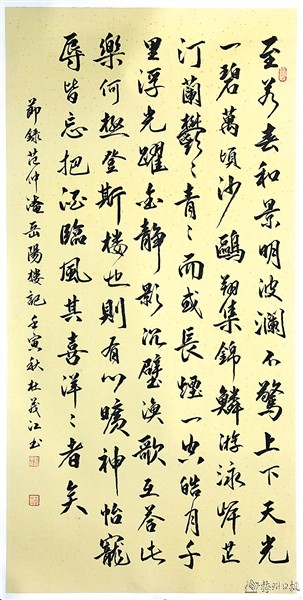 至若春和景明波瀾不驚上下天光
一碧萬頃沙鷗翔集錦鱗游泳岸芷
汀蘭鬱〻青〻而或長煙一空皓月千
里浮光躍金靜影沉璧漁歌互答此
樂何極登斯樓也則有心曠神怡寵
辱皆忘把酒臨風其喜洋〻者矣
節錄范仲淹岳陽樓記壬寅秋杜義江书